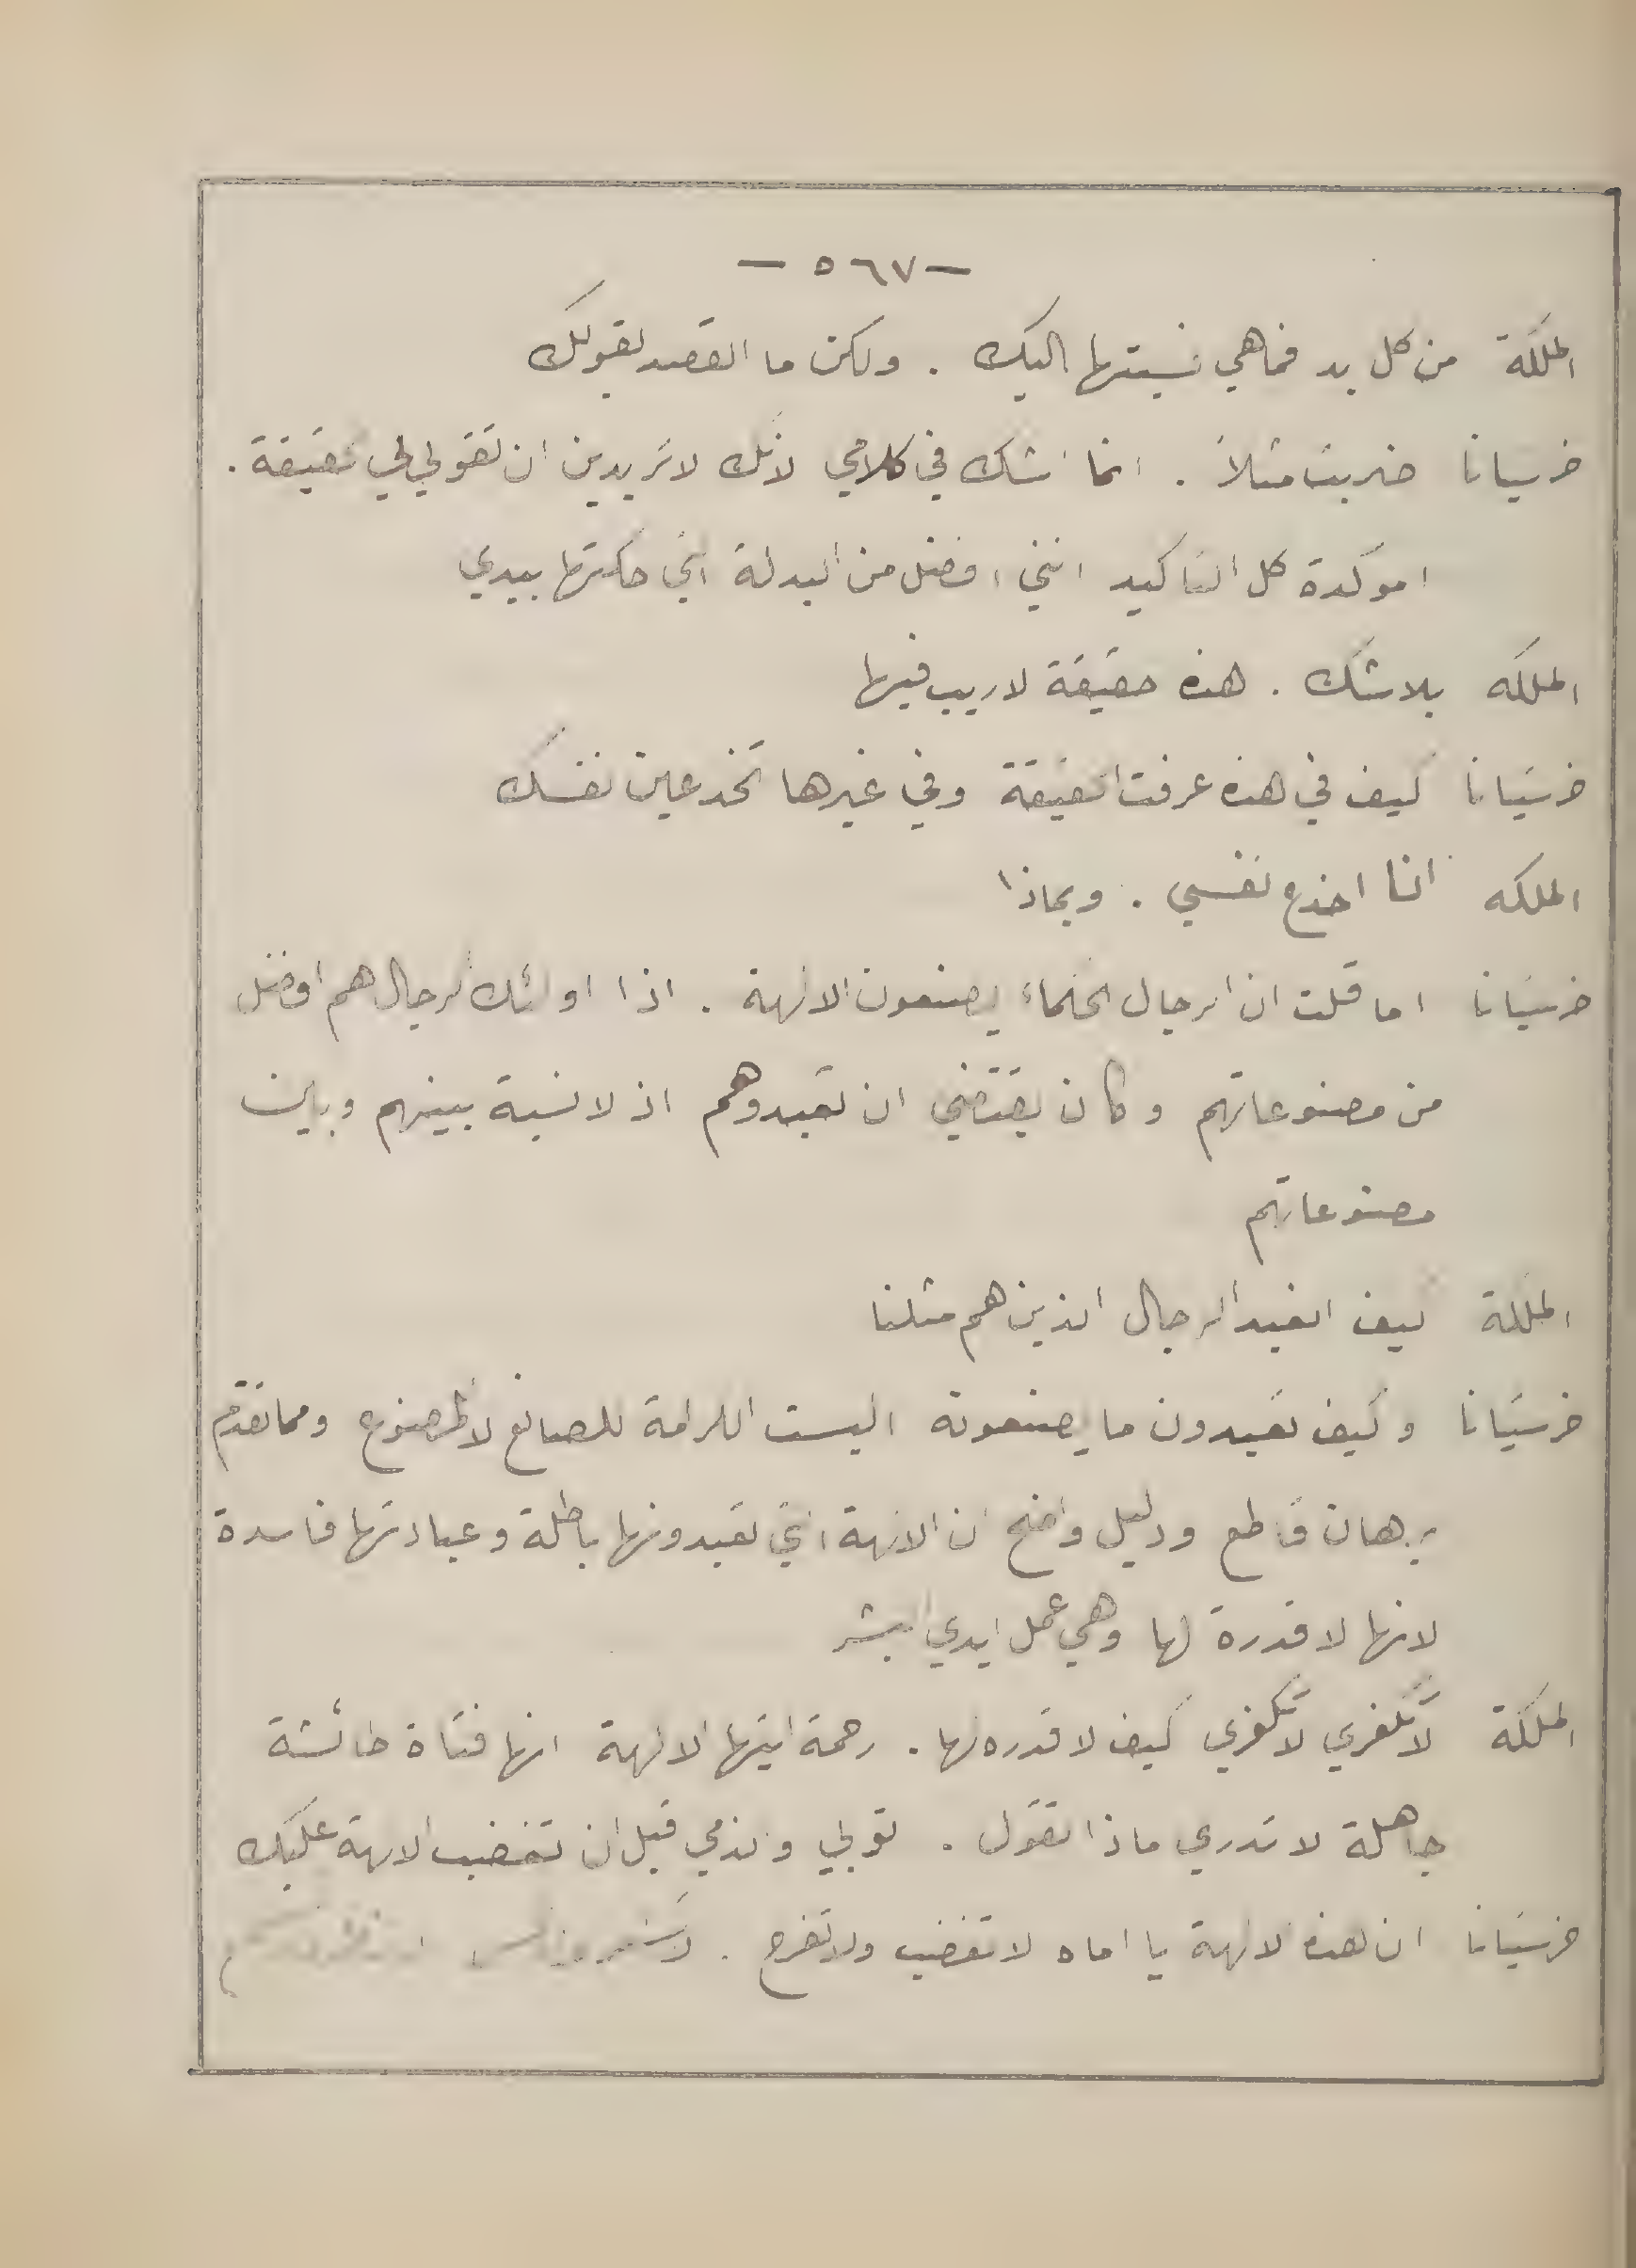 - ٥٦٧ -
الملكة من كل بد فما هي نسبتها اليك . ولكن ما القصد لقولك
خرستيانا ضربت مثلاً . انما اشك في كلامي لانك لا تريدين ان تقولي لي حقيقة .
اموكدة كل التاكيد انني افضل من البدلة التي حاكتها بيدي
الملكه بلا شك . هذه حقيقة لا ريب فيها
خرستيانا كيف في هذه عرفت الحقيقة وفي غيرها تخدعين نفسك
الملكه انا اخدع نفسي . وبماذا
خرستيانا اما قلت ان الرجال الحكماء يصنعون الالهة . اذا اولئك الرجال هم افضل
من مصنوعاتهم وكان يقتضي ان تعبدوهم اذ لا نسبة بينهم وبين
مصنوعاتهم
الملكة كيف اعبد الرجال الذين هم مثلنا
خرستيانا وكيف تعبدون ما يصنعونه اليست الكرامة للصانع لا للمصنوع ومما تقدم
برهان قاطع ودليل واضح ان الالهة التي تعبدونها باطلة وعبادتها فاسدة
لانها لا قدرة لها وهي عمل ايدي البشر
الملكة لا تكفري لا تكفري كيف لا قدره لها . رحمة ايتها الالهة انها فتاة طائشة
جاهلة لا تدري ماذا تقول . توبي وندمي قبل ان تغضب الالهة عليك
خرستيانا ان هذه الالهة يا اماه لا تغضب ولا تفرح .